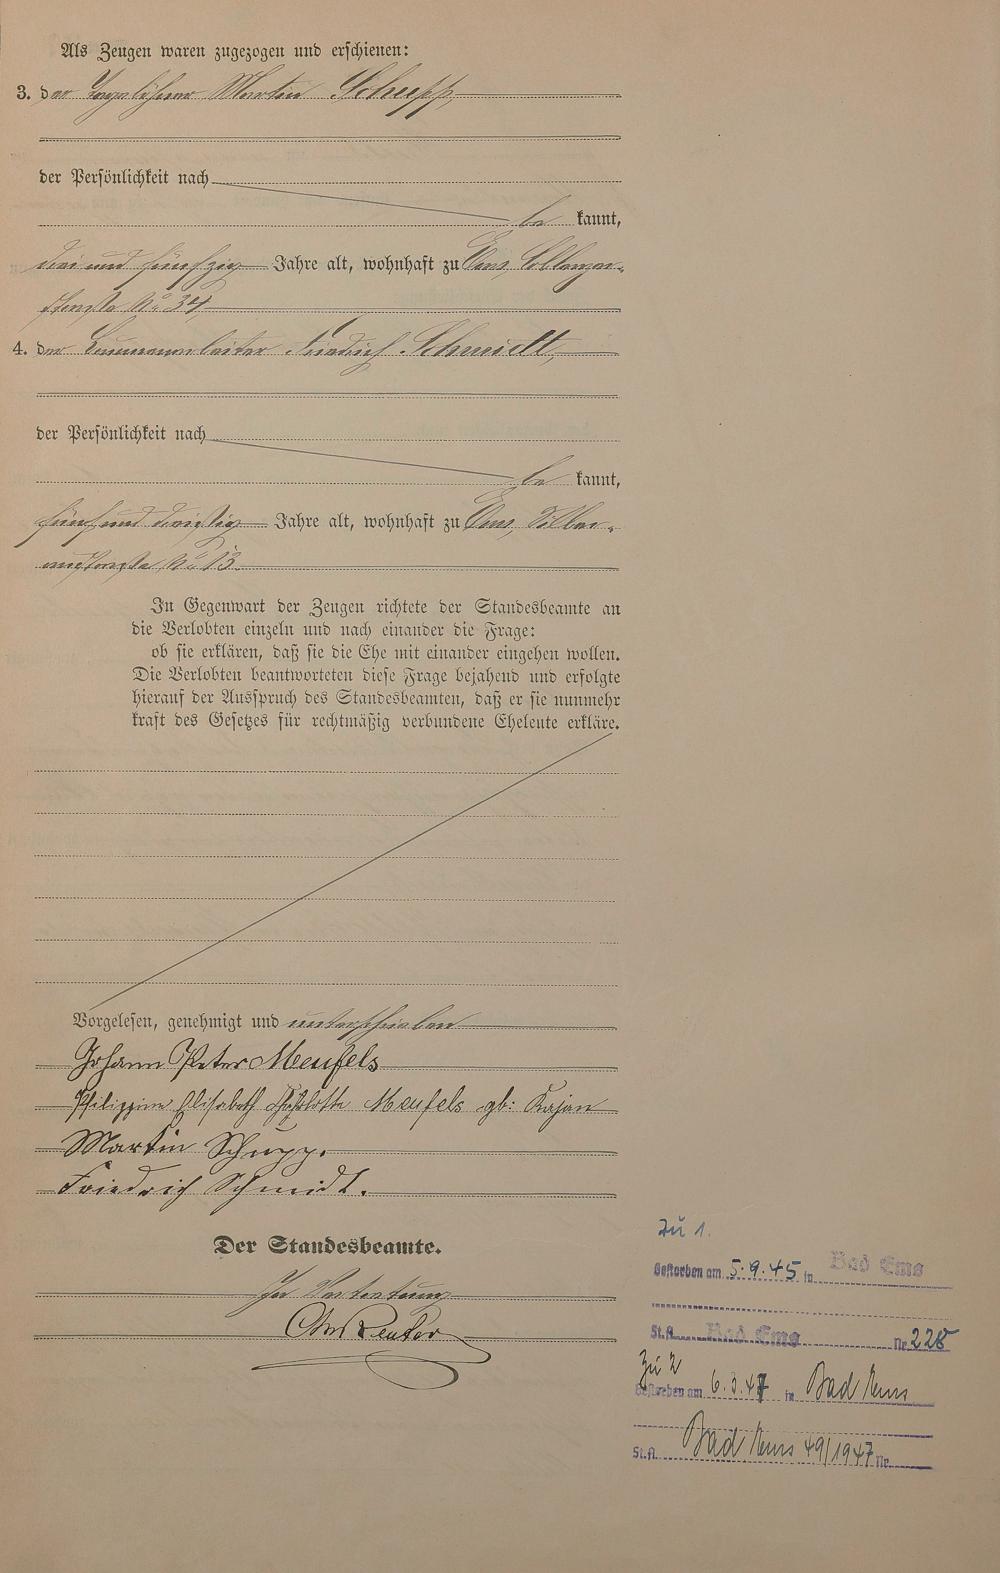 Als Zeugen waren zugezogen und erschienen:
3. der Tagelöhner Martin Schupp
der Persönlichkeit nach
be kannt,
drei und fünfzig Jahre alt, wohnhaft zu Ems, Coblenzer-
straße No 34
4. der Friedrich Schmidt,
der Persönlichkeit nach
be kannt,
fünf und dreißig Jahre alt, wohnhaft zu Ems, Silber-
austraße No 13.
In Gegenwart der Zeugen richtete der Standesbeamte an
die Verlobten einzeln und nach einander die Frage:
ob sie erklären, daß sie die Ehe mit einander eingehen wollen.
Die Verlobten beantworteten diese Frage bejahend und erfolgte
hierauf der Ausspruch des Standesbeamten, daß er sie nunmehr
kraft des Gesetzes für rechtmäßig verbundene Eheleute erkläre.
Vorgelesen, genehmigt und unterschrieben
Johann Peter Meufels
Philippine Elisabeth Charlotte Meufels gb: Kajan
Martin Schupp.
Friedrich Schmidt.
Der Standesbeamte.
In Vertretung
Reuter
Zu 1.
Gestorben am 5.9.45 in Bad Ems
St.A. Bad Ems Nr. 228
Zu 2
Gestorben am 6.3.47 in Bad Ems
St.A. Bad Ems 49/1947 Nr.